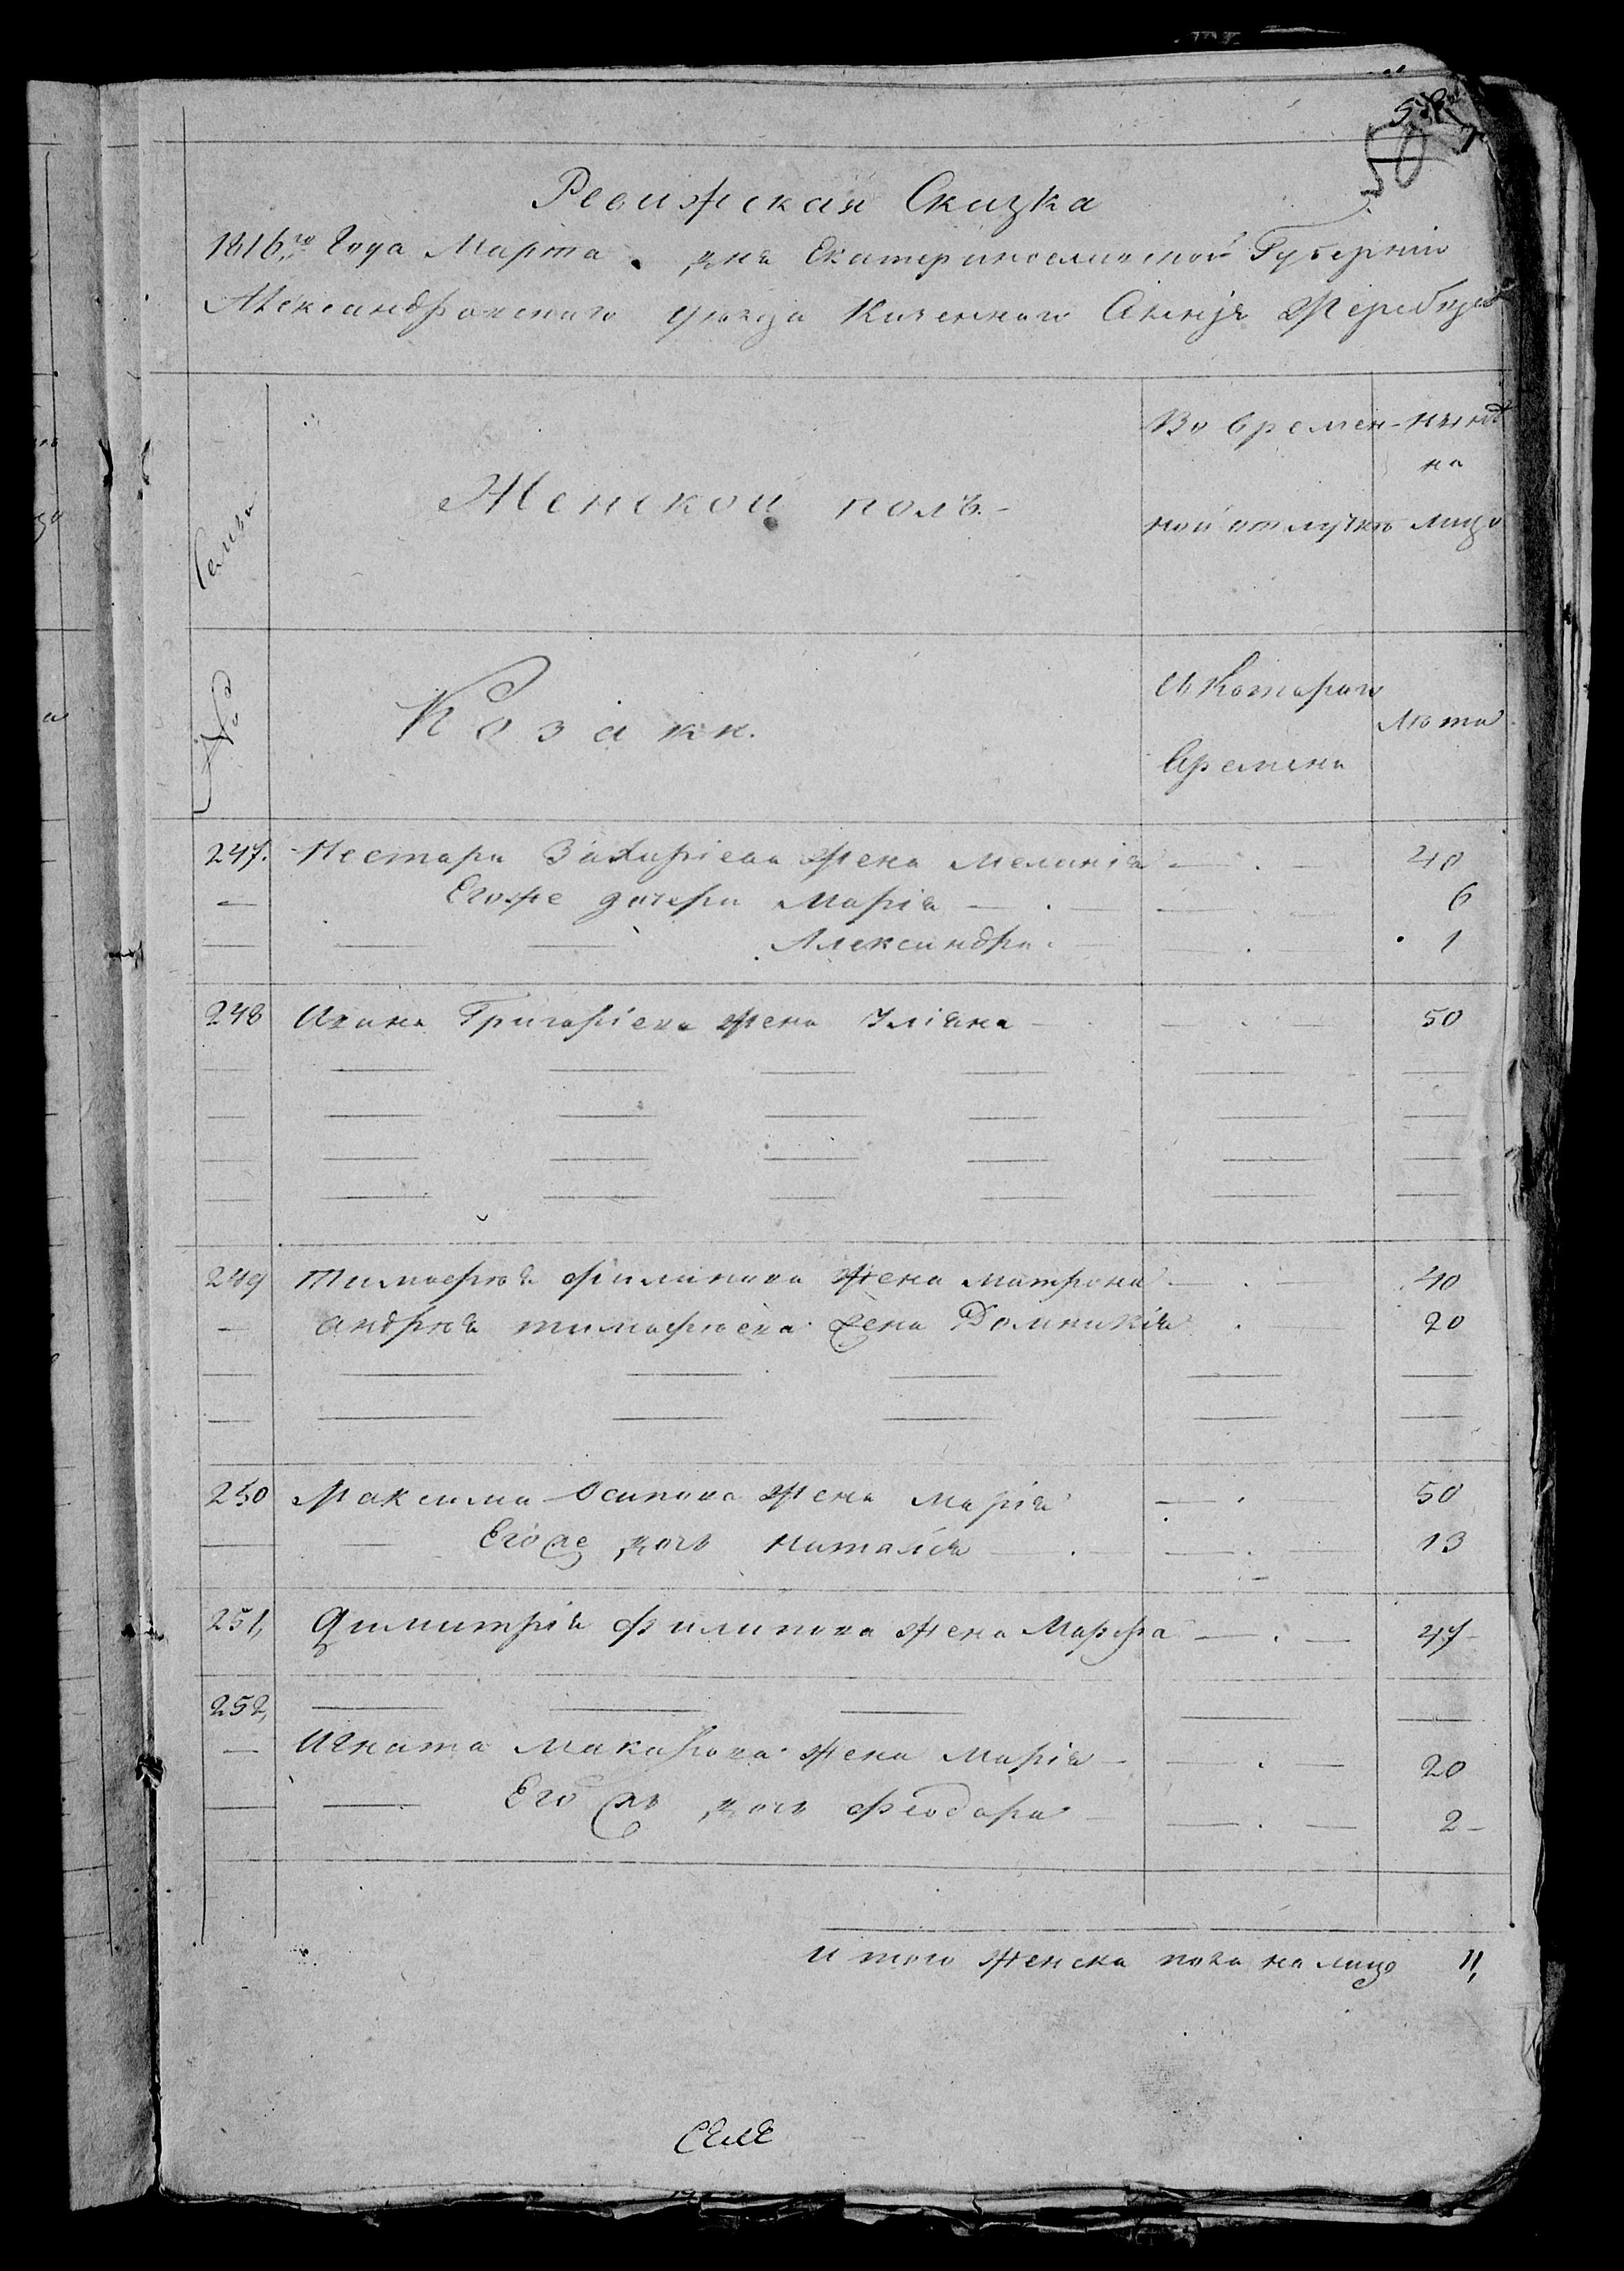 58
Ревижская Сказка
1816го Года Марта дня Екатеринославской Губернии
Александровского уезда Казенного Селенія Жеребца
Женской полъ.
Во времен- ныне
на
ной отлучке лицо
Семьи
№
Козаки.
Съ Которого
Времени
лета
247. Нестара Захаріева Жена Меланія 40
Егоже дочери Марія 6
Александра 1
248 Ивана Григоріева жена Уліяна 50
249 Тимофея Филипова жена Матрона 40
андрея тимофеева жена Домникія 20
250 Максима Осипова жена Марія 50
Его же дочь Наталія 13
251, Димитрія Филипова жена Марфа 47
252,
Игната Макарова жена Марія 20
Его жъ дочь Феодора 2
И того женска пола на лицо 11,